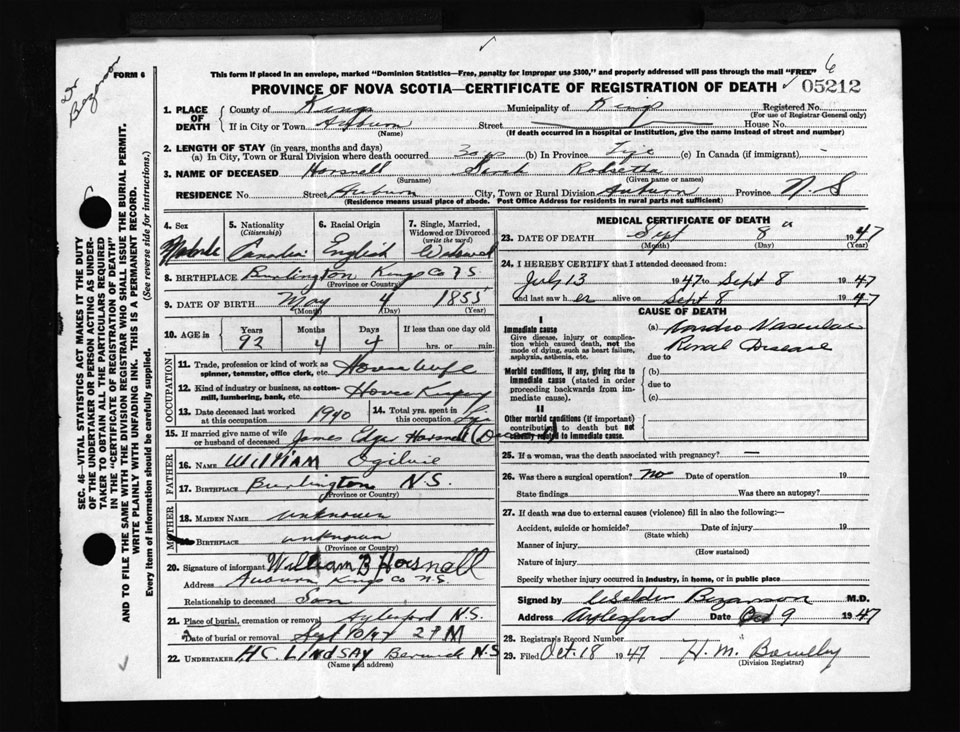 Dr Bezanson
FORM 6
This form if placed in an envelope, marked "Dominion Statistics—Free, penalty for improper use $300," and properly addressed will pass through the mail "FREE"
6
PROVINCE OF NOVA SCOTIA—CERTIFICATE OF REGISTRATION OF DEATH
05212
1. PLACE OF DEATH
County of Kings Municipality of Kings Registered No.
(For use of Registrar General only)
If in City or Town Auburn Street House No.
(Name) (If death occurred in a hospital or institution, give the name instead of street and number)
2. LENGTH OF STAY (in years, months and days)
(a) In City, Town or Rural Division where death occurred 30 (b) In Province (c) In Canada (if immigrant) -
3. NAME OF DECEASED Horsnell Sarah
(Surname) (Given name or names)
RESIDENCE No. Street Auburn City, Town or Rural Division Auburn Province N. S
(Residence means usual place of abode. Post Office Address for residents in rural parts not sufficient)
4. Sex 5. Nationality (Citizenship) 6. Racial Origin 7. Single, Married, Widowed or Divorced (write the word)
Canadian English Widowed
8. BIRTHPLACE Burlington Kings Co N.S.
(Province or Country)
9. DATE OF BIRTH May 4 1855
(Month) (Day) (Year)
10. AGE is Years Months Days If less than one day old
92 4 4 hrs. or min.
OCCUPATION
11. Trade, profession or kind of work as spinner, teamster, office clerk, etc. Housewife
12. Kind of industry or business, as cotton-mill, lumbering, bank, etc. House Keeping
13. Date deceased last worked at this occupation 1940 14. Total yrs. spent in this occupation
15. If married give name of wife or husband of deceased James Edgar Horsnell (Deceased)
FATHER
16. NAME WILLIAM Ogilvie
17. BIRTHPLACE Burlington N.S.
(Province or Country)
MOTHER
18. MAIDEN NAME unknown
19. BIRTHPLACE unknown
(Province or Country)
20. Signature of informant William B Horsnell
Address Auburn Kings Co N.S.
Relationship to deceased Son
21. Place of burial, cremation or removal Aylesford N.S.
Date of burial or removal Sept 10/47 2 PM
22. UNDERTAKER H.C. LINDSAY Berwick N.S
(Name and address)
MEDICAL CERTIFICATE OF DEATH
23. DATE OF DEATH Sept 8 1947
(Month) (Day) (Year)
24. I HEREBY CERTIFY that I attended deceased from:
July 13 1947 to Sept 8 1947
and last saw h er alive on Sept 8 1947
CAUSE OF DEATH
I
Immediate cause
Give disease, injury or complication which caused death, not the mode of dying, such as heart failure, asphyxia, asthenia, etc.
(a) Cardio Vascular
due to Renal Disease
Morbid conditions, if any, giving rise to immediate cause (stated in order proceeding backwards from immediate cause).
(b)
due to
(c)
II
Other morbid conditions (if important) contributing to death but not causally related to immediate cause.
25. If a woman, was the death associated with pregnancy? —
26. Was there a surgical operation? no Date of operation 19
State findings Was there an autopsy?
27. If death was due to external causes (violence) fill in also the following:—
Accident, suicide or homicide? Date of injury 19
(State which)
Manner of injury
(How sustained)
Nature of injury
Specify whether injury occurred in industry, in home, or in public place
Signed by Bezanson M.D.
Address Aylesford Date Oct 9 1947
28. Registrar's Record Number
29. Filed Oct. 18 1947 H. M.
(Division Registrar)
SEC. 46—VITAL STATISTICS ACT MAKES IT THE DUTY
OF THE UNDERTAKER OR PERSON ACTING AS UNDER-
TAKER TO OBTAIN ALL THE PARTICULARS REQUIRED
IN THE "CERTIFICATE OF REGISTRATION OF DEATH"
AND TO FILE THE SAME WITH THE DIVISION REGISTRAR WHO SHALL ISSUE THE BURIAL PERMIT.
WRITE PLAINLY WITH UNFADING INK. THIS IS A PERMANENT RECORD.
Every item of information should be carefully supplied. (See reverse side for instructions.)